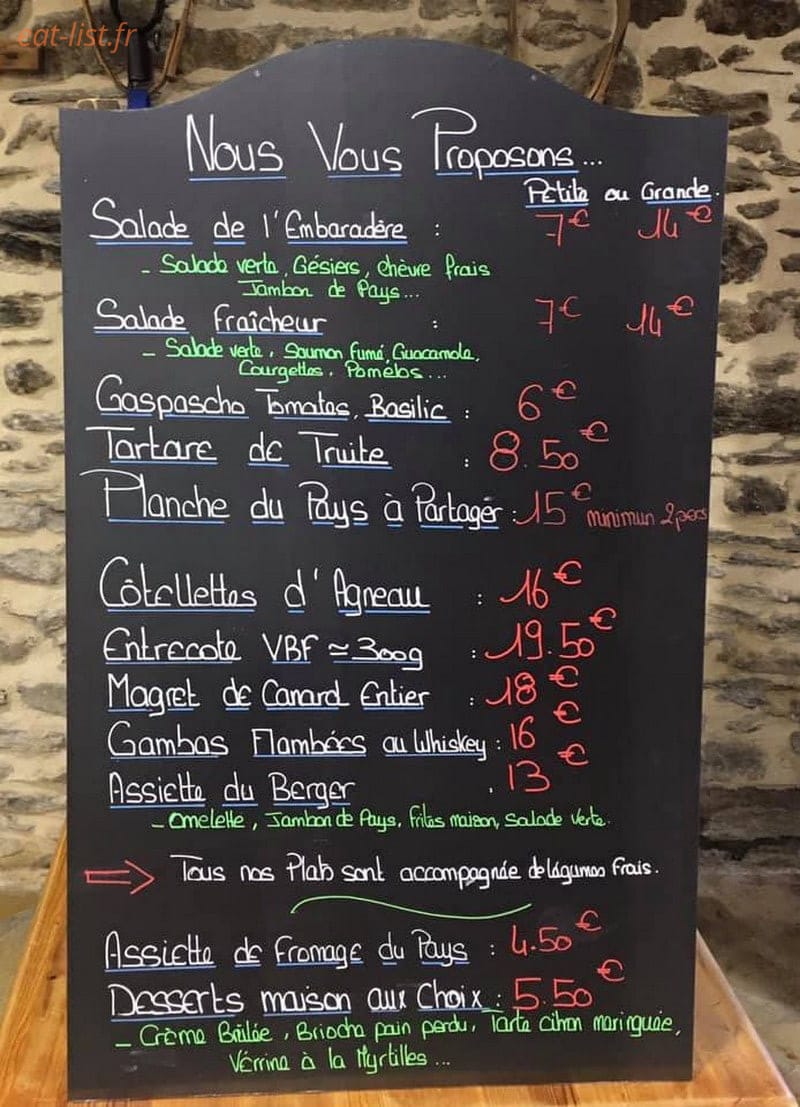 cat-list.fr
Nous Vous Proposons...
Petite ou Grande.
Salade de l'Embaradère : 7€ 14€
- Salade verte, Gésiers, chèvre frais
Jambon de Pays...
Salade Fraîcheur : 7€ 14€
- Salade verte, Saumon fumé, Guacamole,
Courgettes, Pomelos...
Gaspascho Tomates, Basilic : 6€
Tartare de Truite : 8.50€
Planche du Pays à Partager : 15€ minimun 2pers
Côtellettes d'Agneau : 16€
Entrecote VBF ≃ 300g : 19.50€
Magret de Canard Entier : 18€
Gambas Flambées au Whiskey : 16€
Assiette du Berger : 13€
- Omelette, Jambon de Pays, frites maison, Salade Verte.
⇒ Tous nos Plats sont accompagnée de légumes frais.
Assiette de Fromage du Pays : 4.50€
Desserts maison aux Choix : 5.50€
- Crème Brûlée, Brioche pain perdu, Tarte citron meringuée,
Vérrine à la Myrtilles...